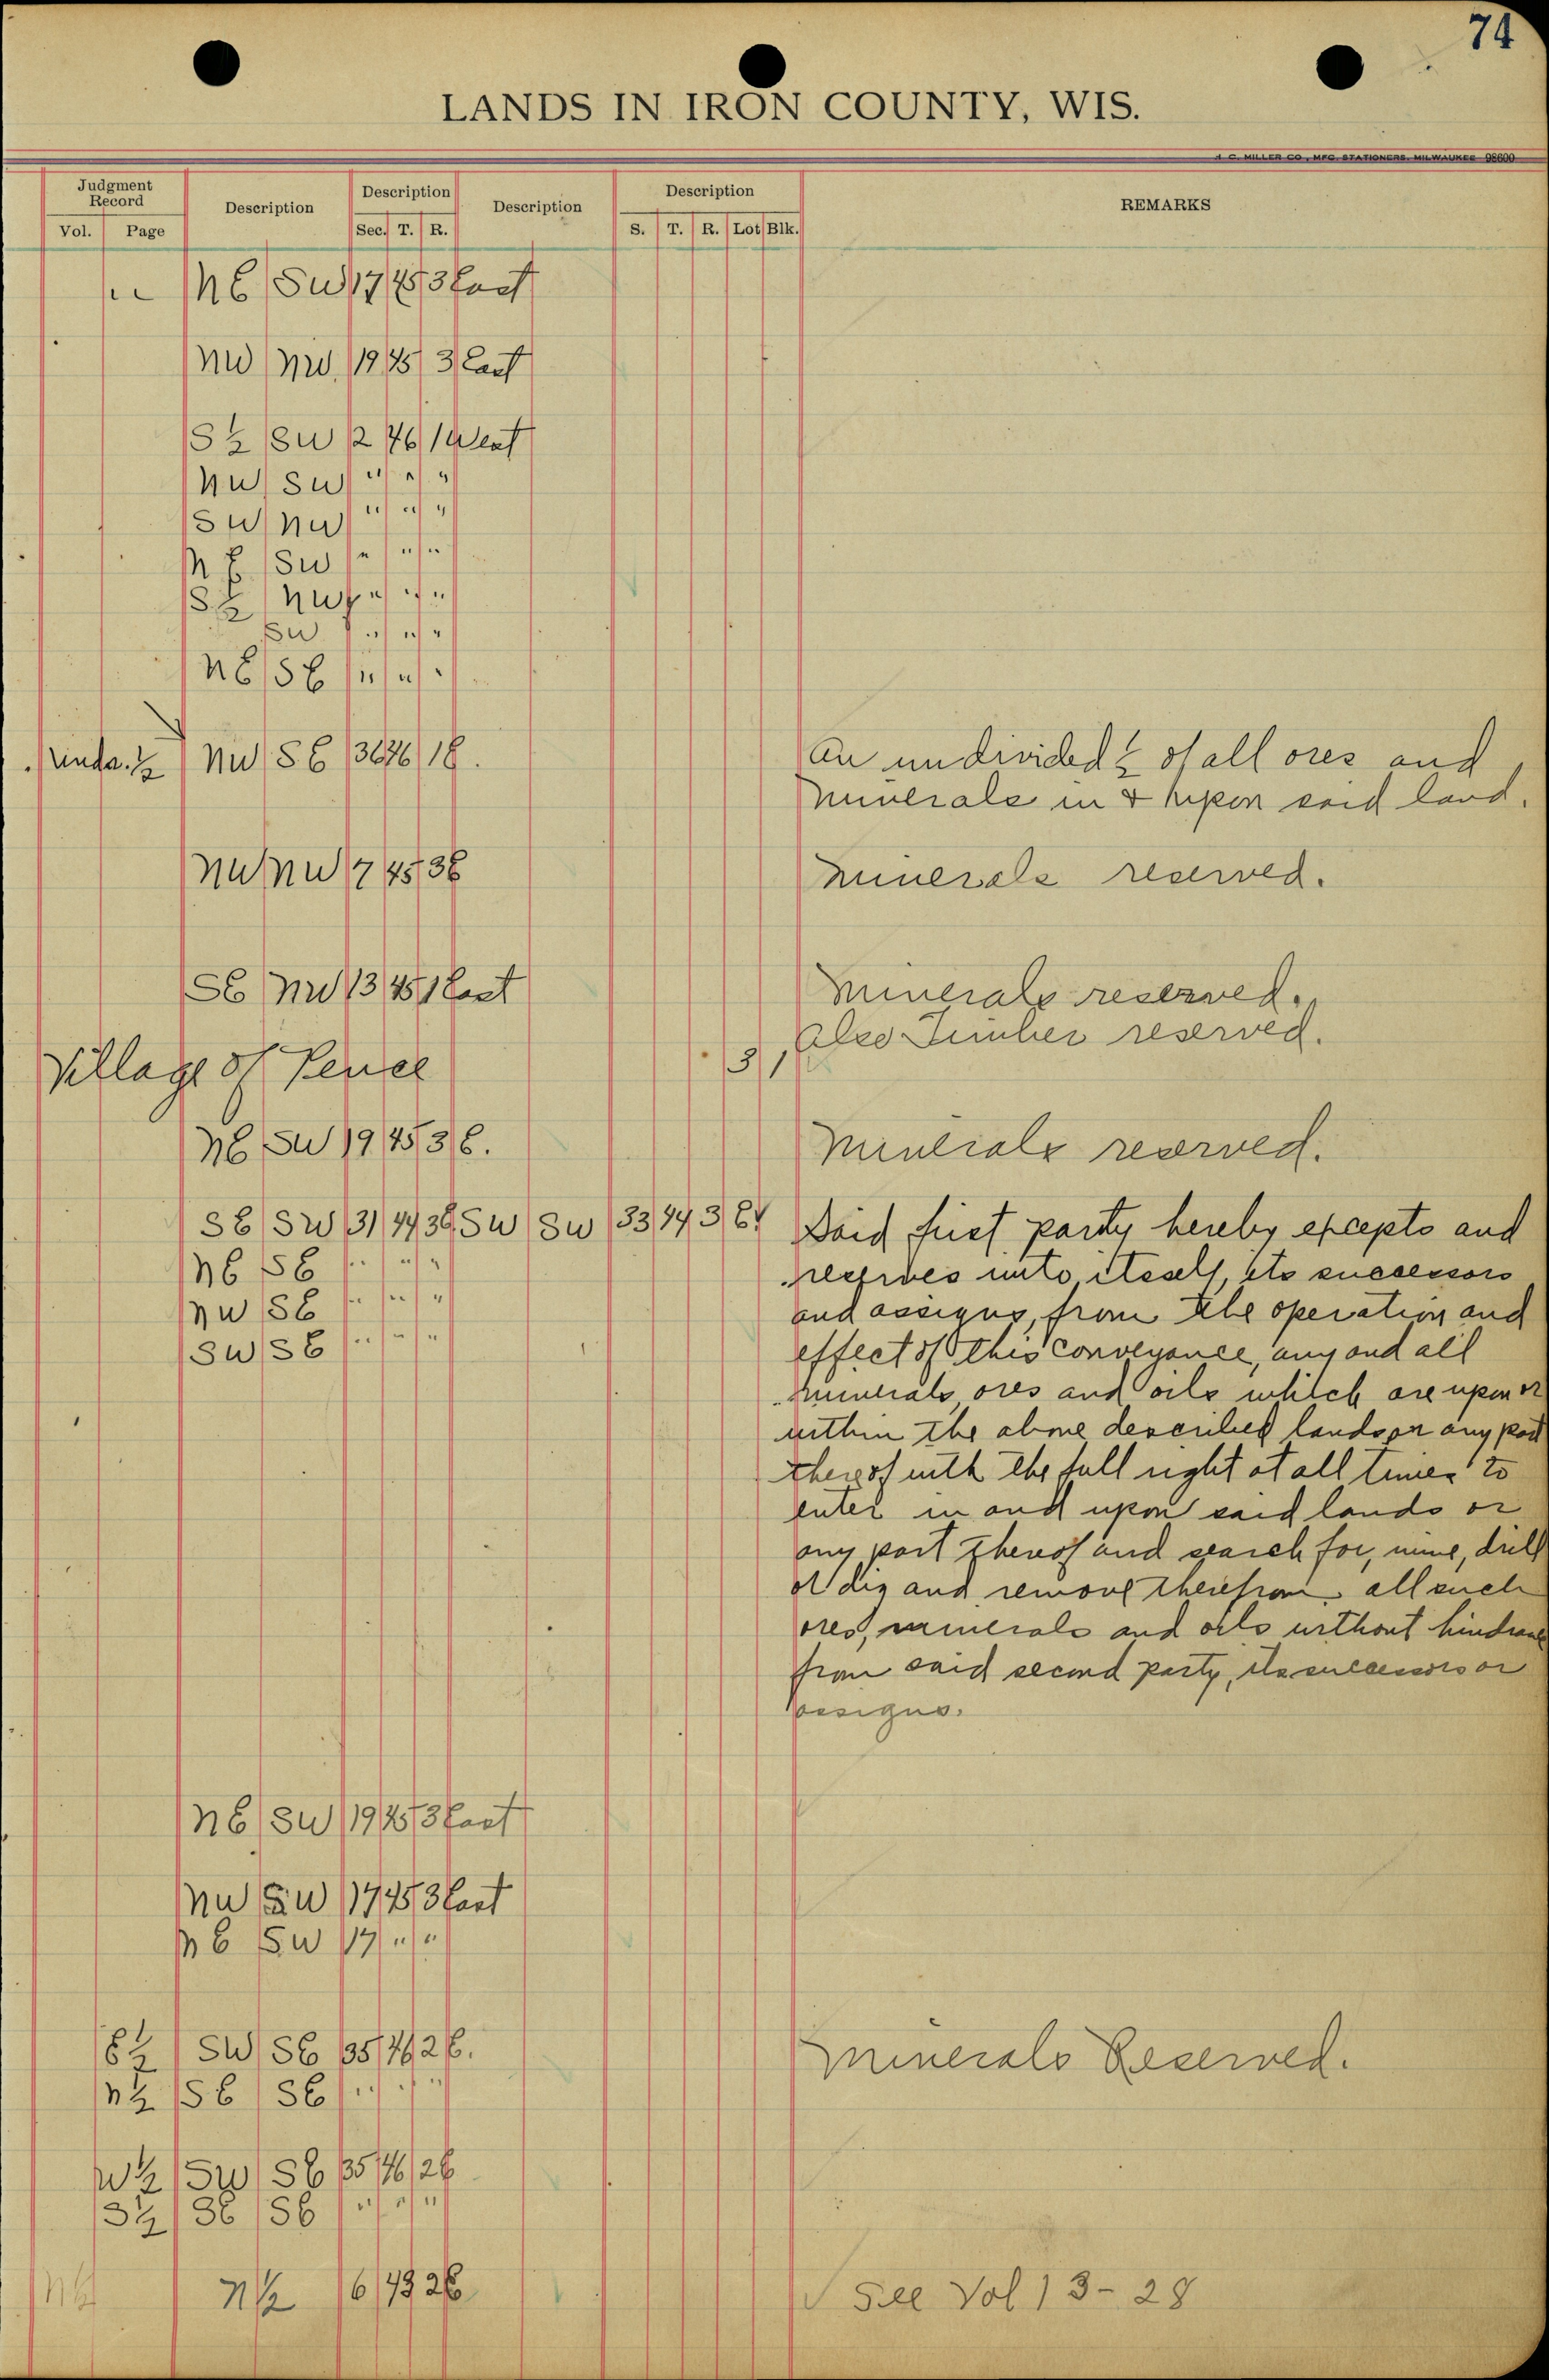 74
LANDS IN IRON COUNTY, WIS.
H. C. MILLER CO., MFG. STATIONERS, MILWAUKEE 98600
Judgment Record Description Description Description Description REMARKS
Vol. Page Sec. T. R. S. T. R. Lot Blk.
NE SW 17 45 3 East
NW NW 19 45 3 East
S½ SW 2 46 1 West
NW SW " " "
SW NW " " "
NE SW " " "
SE NW " " "
SW " " "
NE SE " " "
Und. ½ NW SE 36 46 1E. An undivided ½ of all ores and
minerals in & upon said land.
NW NW 7 45 3E minerals reserved.
SE NW 13 45 1 East minerals reserved.
Also Timber reserved.
Village of Pence 3 1
NE SW 19 45 3E. Minerals reserved.
SE SW 31 44 3E SW SW 33 44 3 E Said first party hereby excepts and
NE SE " " " reserves unto itself, its successors
NW SE " " " and assigns, from the operation and
SW SE " " " effect of this conveyance, any and all
minerals, ores and oils which are upon or
within the above described lands or any part
thereof with the full right at all times to
enter in and upon said lands or
any part thereof and search for, mine, drill
or dig and remove therefrom all such
ores, minerals and oils without hindrance
from said second party, its successors or
assigns.
NE SW 19 45 3 East
NW SW 17 45 3 East
NE SW 17 " "
E½ SW SE 35 46 2E. Minerals Reserved.
N½ SE SE " " "
W½ SW SE 35 46 2E
S½ SE SE " " "
N½ 6 43 2E See Vol 13-28